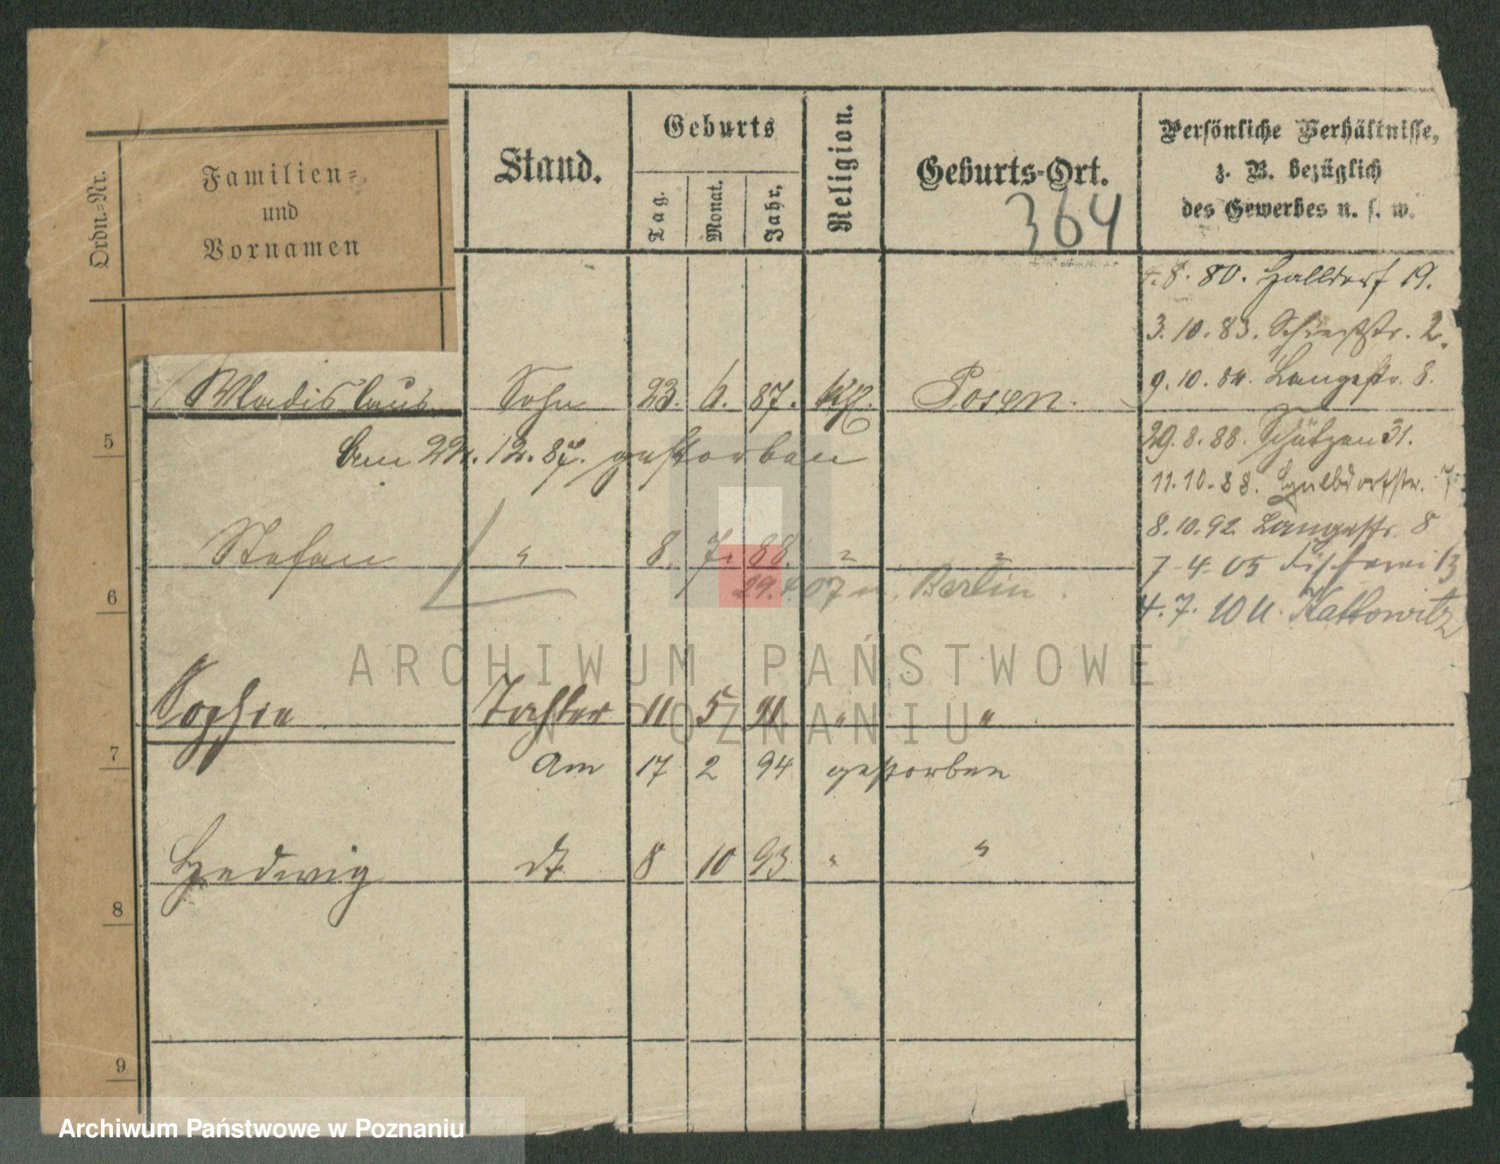 Ordn.-Nr.
Familien-
und
Vornamen
Stand.
Geburts
Tag.
Monat.
Jahr.
Religion.
Geburts-Ort.
364
Persönliche Verhältnisse,
z. B. bezüglich
des Gewerbes u. s. w.
4. 8. 80. Halldorf 19.
3. 10. 83. Schießstr. 2.
9. 10. 84. Langestr. 8.
Wladislaus Sohn 23. 6. 87. Posen.
5
am 24. 12. 87. gestorben
29. 8. 88. Schützen 31.
11. 10. 88. Halbdorfstr. 7.
8. 10. 92. Langestr. 8
Stefan " 8. 7. 88. " "
7 - 4 - 05 Fischerei 13
6
29. 4. 07 n. Berlin.
4. 7. 10 u. Kattowitz
Sophie Tochter 11 5 91 " "
7
am 17 2 94 gestorben
Hedwig dt 8 10 93 " "
8
9
ARCHIWUM PAŃSTWOWE
W POZNANIU
Archiwum Państwowe w Poznaniu